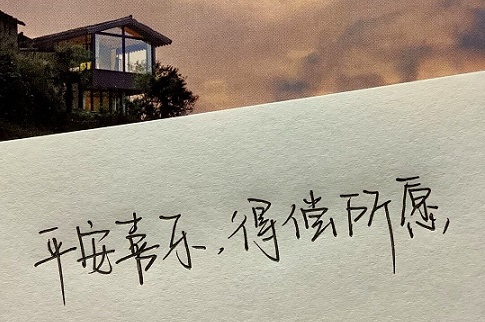 平安喜乐,得偿所愿,